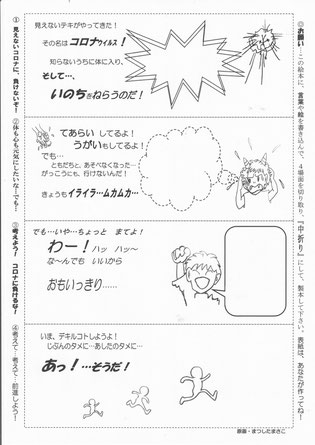 ◎お願い…この絵本に、言葉や絵を書き込んで、4場面を切り取り、『中折り』にして、製本して下さい。表紙は、あなたが作ってね!
①見えないコロナに、負けないぞ!
見えないテキがやってきた!
その名はコロナウイルス!
知らないうちに体に入り、
そして…、
いのちをねらうのだ!
②体も心も元気にしたいな…でも…
てあらい してるよ!
うがいもしてるよ!
でも…
ともだちと、あそべなくなった…
がっこうにも、行けないんだ!
きょうもイライラ…ムカムカ…
③考えよう! コロナに負けるな!
でも…いや…ちょっと まてよ!
わー! ハッ ハッ~
な~んでも いいから
おもいっきり……
④考えて…考えて…前進しよう!
いま、デキルコトしようよ!
じぶんのタメに…あしたのタメに…
あっ!…そうだ!
原画・まつしたまさこ